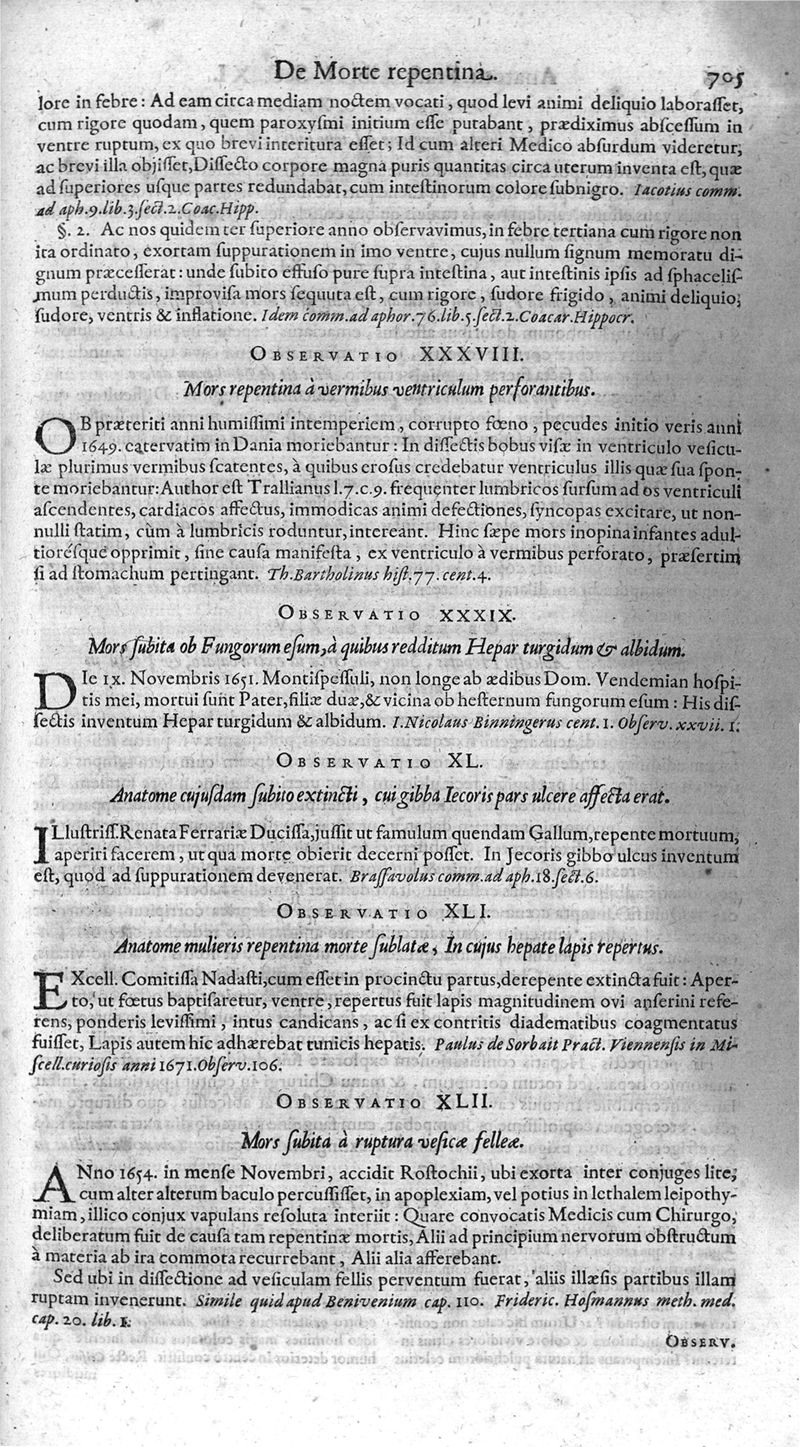 De Morte repentina.
705
lore in febre: Ad eam circa mediam noctem vocati, quod levi animi deliquio laboraſſet,
cum rigore quodam, quem paroxyſmi initium eſſe putabant, prædiximus abſceſſum in
ventre ruptum, ex quo brevi interitura eſſet; Id cum alteri Medico abſurdum videretur,
ac brevi illa objiſſet, Diſſecto corpore magna puris quantitas circa uterum inventa eſt, quæ
ad ſuperiores uſque partes redundabat, cum inteſtinorum colore ſubnigro. Iacotius comm.
ad aph.9.lib.3.ſect.2.Coac.Hipp.
§. 2. Ac nos quidem ter ſuperiore anno obſervavimus, in febre tertiana cum rigore non
ita ordinato, exortam ſuppurationem in imo ventre, cujus nullum ſignum memoratu di-
gnum præceſſerat: unde ſubito effuſo pure ſupra inteſtina, aut inteſtinis ipſis ad ſphaceliſ-
mum perductis, improviſa mors ſequuta eſt, cum rigore, ſudore frigido, animi deliquio,
ſudore, ventris & inflatione. Idem comm.ad aphor.76.lib.5.ſect.2.Coacar.Hippocr.
OBSERVATIO XXXVIII.
Mors repentina à vermibus ventriculum perforantibus.
OB præteriti anni humiſſimi intemperiem, corrupto fœno, pecudes initio veris anni
1649. catervatim in Dania moriebantur: In diſſectis bobus viſæ in ventriculo veſicu-
læ plurimus vermibus ſcatentes, à quibus eroſus credebatur ventriculus illis quæ ſua ſpon-
te moriebantur: Author eſt Trallianus l.7.c.9. frequenter lumbricos ſurſum ad os ventriculi
aſcendentes, cardiacos affectus, immodicas animi defectiones, ſyncopas excitare, ut non-
nulli ſtatim, cùm à lumbricis roduntur, intereant. Hinc ſæpe mors inopina infantes adul-
tioreſque opprimit, ſine cauſa manifeſta, ex ventriculo à vermibus perforato, præſertim
ſi ad ſtomachum pertingant. Th.Bartholinus hiſt.77.cent.4.
OBSERVATIO XXXIX.
Mors ſubita ob Fungorum eſum, à quibus redditum Hepar turgidum & albidum.
DIe IX. Novembris 1651. Montiſpeſſuli, non longe ab ædibus Dom. Vendemian hoſpi-
tis mei, mortui ſunt Pater, filiæ duæ, & vicina ob heſternum fungorum eſum: His diſ-
ſectis inventum Hepar turgidum & albidum. I.Nicolaus Binningerus cent. 1. Obſerv. xxvii. 1.
OBSERVATIO XL.
Anatome cujuſdam ſubito extincti, cui gibba Iecoris pars ulcere affecta erat.
ILluſtriſſ. Renata Ferrariæ Duciſſa, juſſit ut famulum quendam Gallum, repente mortuum,
aperiri facerem, ut qua morte obierit decerni poſſet. In Jecoris gibbo ulcus inventum
eſt, quod ad ſuppurationem devenerat. Braſſavolus comm.ad aph.18.ſect.6.
OBSERVATIO XLI.
Anatome mulieris repentina morte ſublatæ, In cujus hepate lapis repertus.
EXcell. Comitiſſa Nadaſti, cum eſſet in procinctu partus, derepente extincta fuit: Aper-
to, ut fœtus baptiſaretur, ventre, repertus fuit lapis magnitudinem ovi anſerini refe-
rens, ponderis leviſſimi, intus candicans, ac ſi ex contritis diadematibus coagmentatus
fuiſſet, Lapis autem hic adhærebat tunicis hepatis. Paulus de Sorbait Pract. Viennenſis in Mi-
ſcell.curioſis anni 1671.Obſerv.106.
OBSERVATIO XLII.
Mors ſubita à ruptura veſicæ felleæ.
ANno 1654. in menſe Novembri, accidit Roſtochii, ubi exorta inter conjuges lite,
cum alter alterum baculo percuſſiſſet, in apoplexiam, vel potius in lethalem leipothy-
miam, illico conjux vapulans reſoluta interiit: Quare convocatis Medicis cum Chirurgo,
deliberatum fuit de cauſa tam repentinæ mortis, Alii ad principium nervorum obſtructum
à materia ab ira commota recurrebant, Alii alia afferebant.
Sed ubi in diſſectione ad veſiculam fellis perventum fuerat, aliis illæſis partibus illam
ruptam invenerunt. Simile quid apud Benivenium cap. 110. Frideric. Hofmannus meth. med.
cap. 20. lib. 1.
OBSERV.